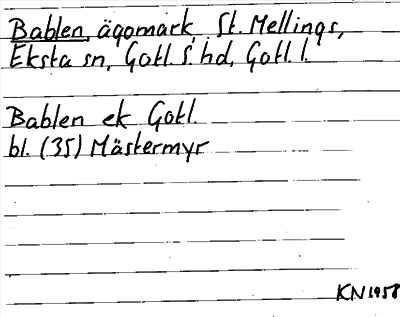 Bablen, ägomark, St. Mellings,
Eksta sn, Gotl. S. hd, Gotl. l.
Bablen ek Gotl.
bl. (35) Mästermyr
KN 1958